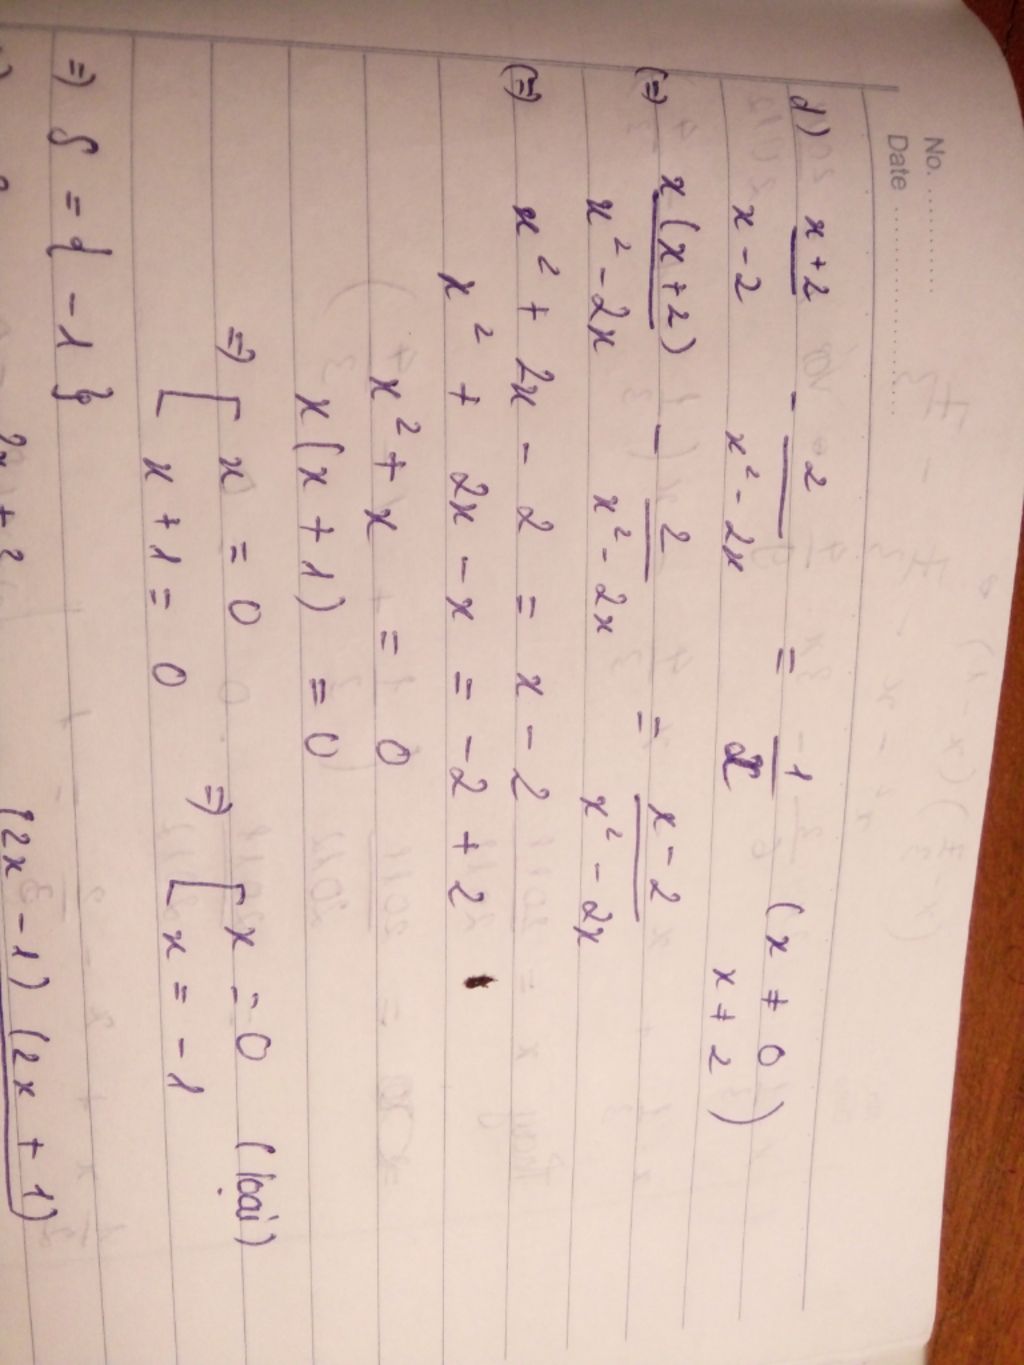 No. ............
Date ........................
d) x+2/x-2 - 2/x²-2x = 1/x (x ≠ 0
x ≠ 2)
(=) x(x+2)/x²-2x - 2/x²-2x = x-2/x²-2x
(=) x² + 2x - 2 = x - 2
x² + 2x - x = -2 + 2
x² + x = 0
x(x + 1) = 0
=) [ x = 0 =) [ x = 0 (loại)
x + 1 = 0 x = -1
=) S = { -1 }
2x + 2 (2x - 1) (2x + 1)